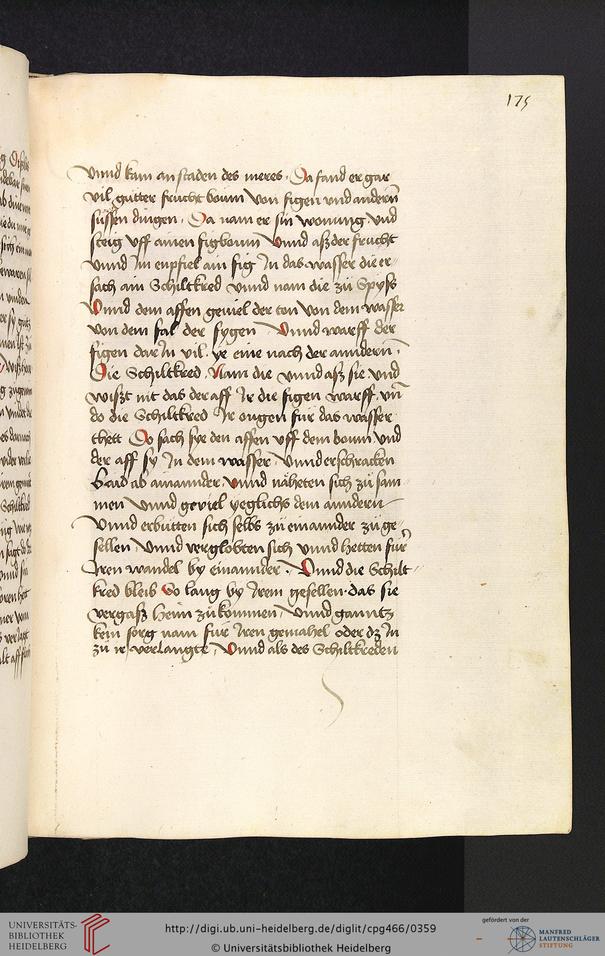 175
vnnd kam an staden des meres · Da fand er gar
vil gůtter frucht boum von figen vnd andern̄
süssen dingen · Da nam er sin wonung vnd
steig vff ainen figboum vnnd aß der frucht
vnnd Im enpfiel ain fig In das wasser die er=
sach ain Schiltkred vnnd nam die zů Spyß
Vnnd dem affen geuiel der ton von dem wasser
von dem fal der fygen Vnnd warff der
figen dar In vil · ye eine nach der anndern ·
Die Schiltkred · Nam die vnnd aß sie vnd
wißt nit das der aff Ir die figen warff · vn̄
do die Schiltkred Ir ougen für das wasser
thett Do sach sye den affen vff dem boum vnd
der aff sy In dem wasser · Vnnd erschracken
baid ab ainannder vnnd näheten sich zů sam
men vnnd geviel yeglichs dem anndern
Vnnd erbutten sich selbs zů einannder zů ge=
sellen · Vnnd verglobten sich vnnd hetten für
Iren wandel by einannder · Vnnd die Schilt=
kred bleib so lang by Irem gesellen · das sie
vergaß heim zů kommen · Vnnd ganntz
kein sorg nam für Iren gemahel oder dz In
zů ir verlangte · Vnnd als des Schiltkreden
UNIVERSITÄTS-
BIBLIOTHEK
HEIDELBERG
http://digi.ub.uni-heidelberg.de/diglit/cpg466/0359
© Universitätsbibliothek Heidelberg
gefördert von der
MANFRED
LAUTENSCHLÄGER
STIFTUNG